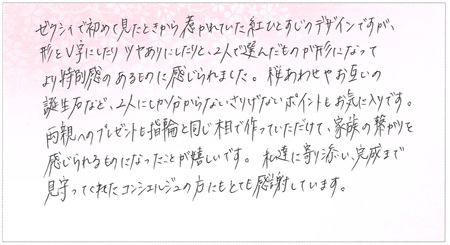 ゼクシィで初めて見たときから惹かれていた紅ひとすじのデザインですが、
形をV字にしたりツヤありにしたりと、2人で選んだものが形になって
より特別感のあるものに感じられました。桜あわせやお互いの
誕生石など、2人にしか分からないさりげないポイントもお気に入りです。
両親へのプレゼントも指輪と同じ木目で作っていただけて、家族の繋がりを
感じられるものになったことが嬉しいです。私達に寄り添い、完成まで
見守ってくれたコンシェルジュの方にもとても感謝しています。